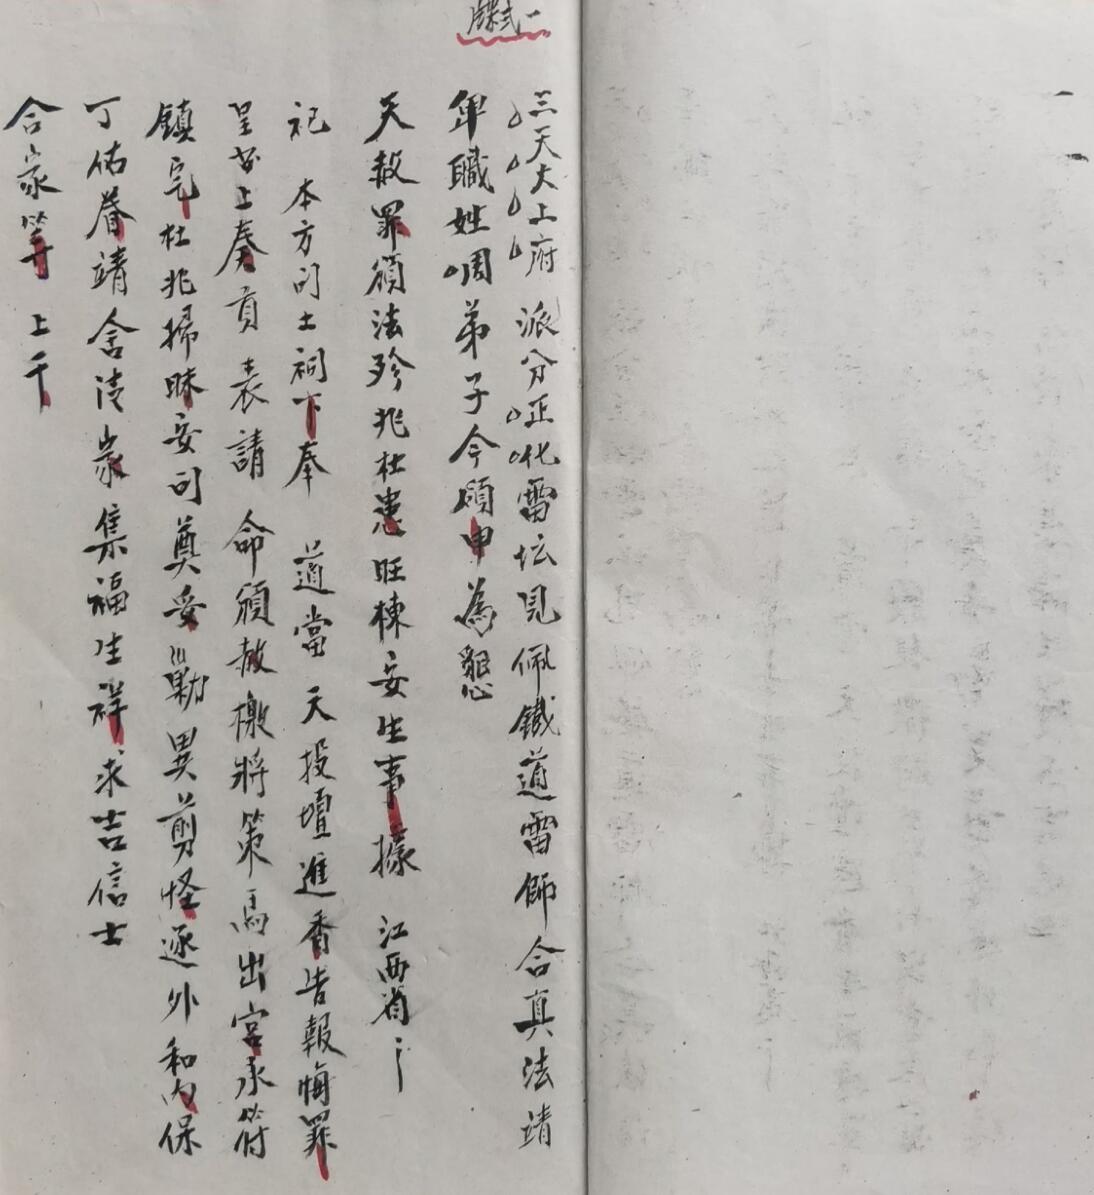 牒式一
三天大上府 派分正化雷坛見佩鐵道雷師合真法靖
卑職姓周弟子今頒申為懇
天赦罪頒法殄兆杜患旺棟安生事據 江西省
祀 本方司土祠下奉 道當 天投壇進香告報悔罪
呈安上奏貢表請 命頒赦檄將策馬出宮承符
鎮宅杜兆掃昧安司奠妥巢勦異剪怪逐外和內保
丁佑眷靖舍清家集福生祥求吉信士
合家等 上千